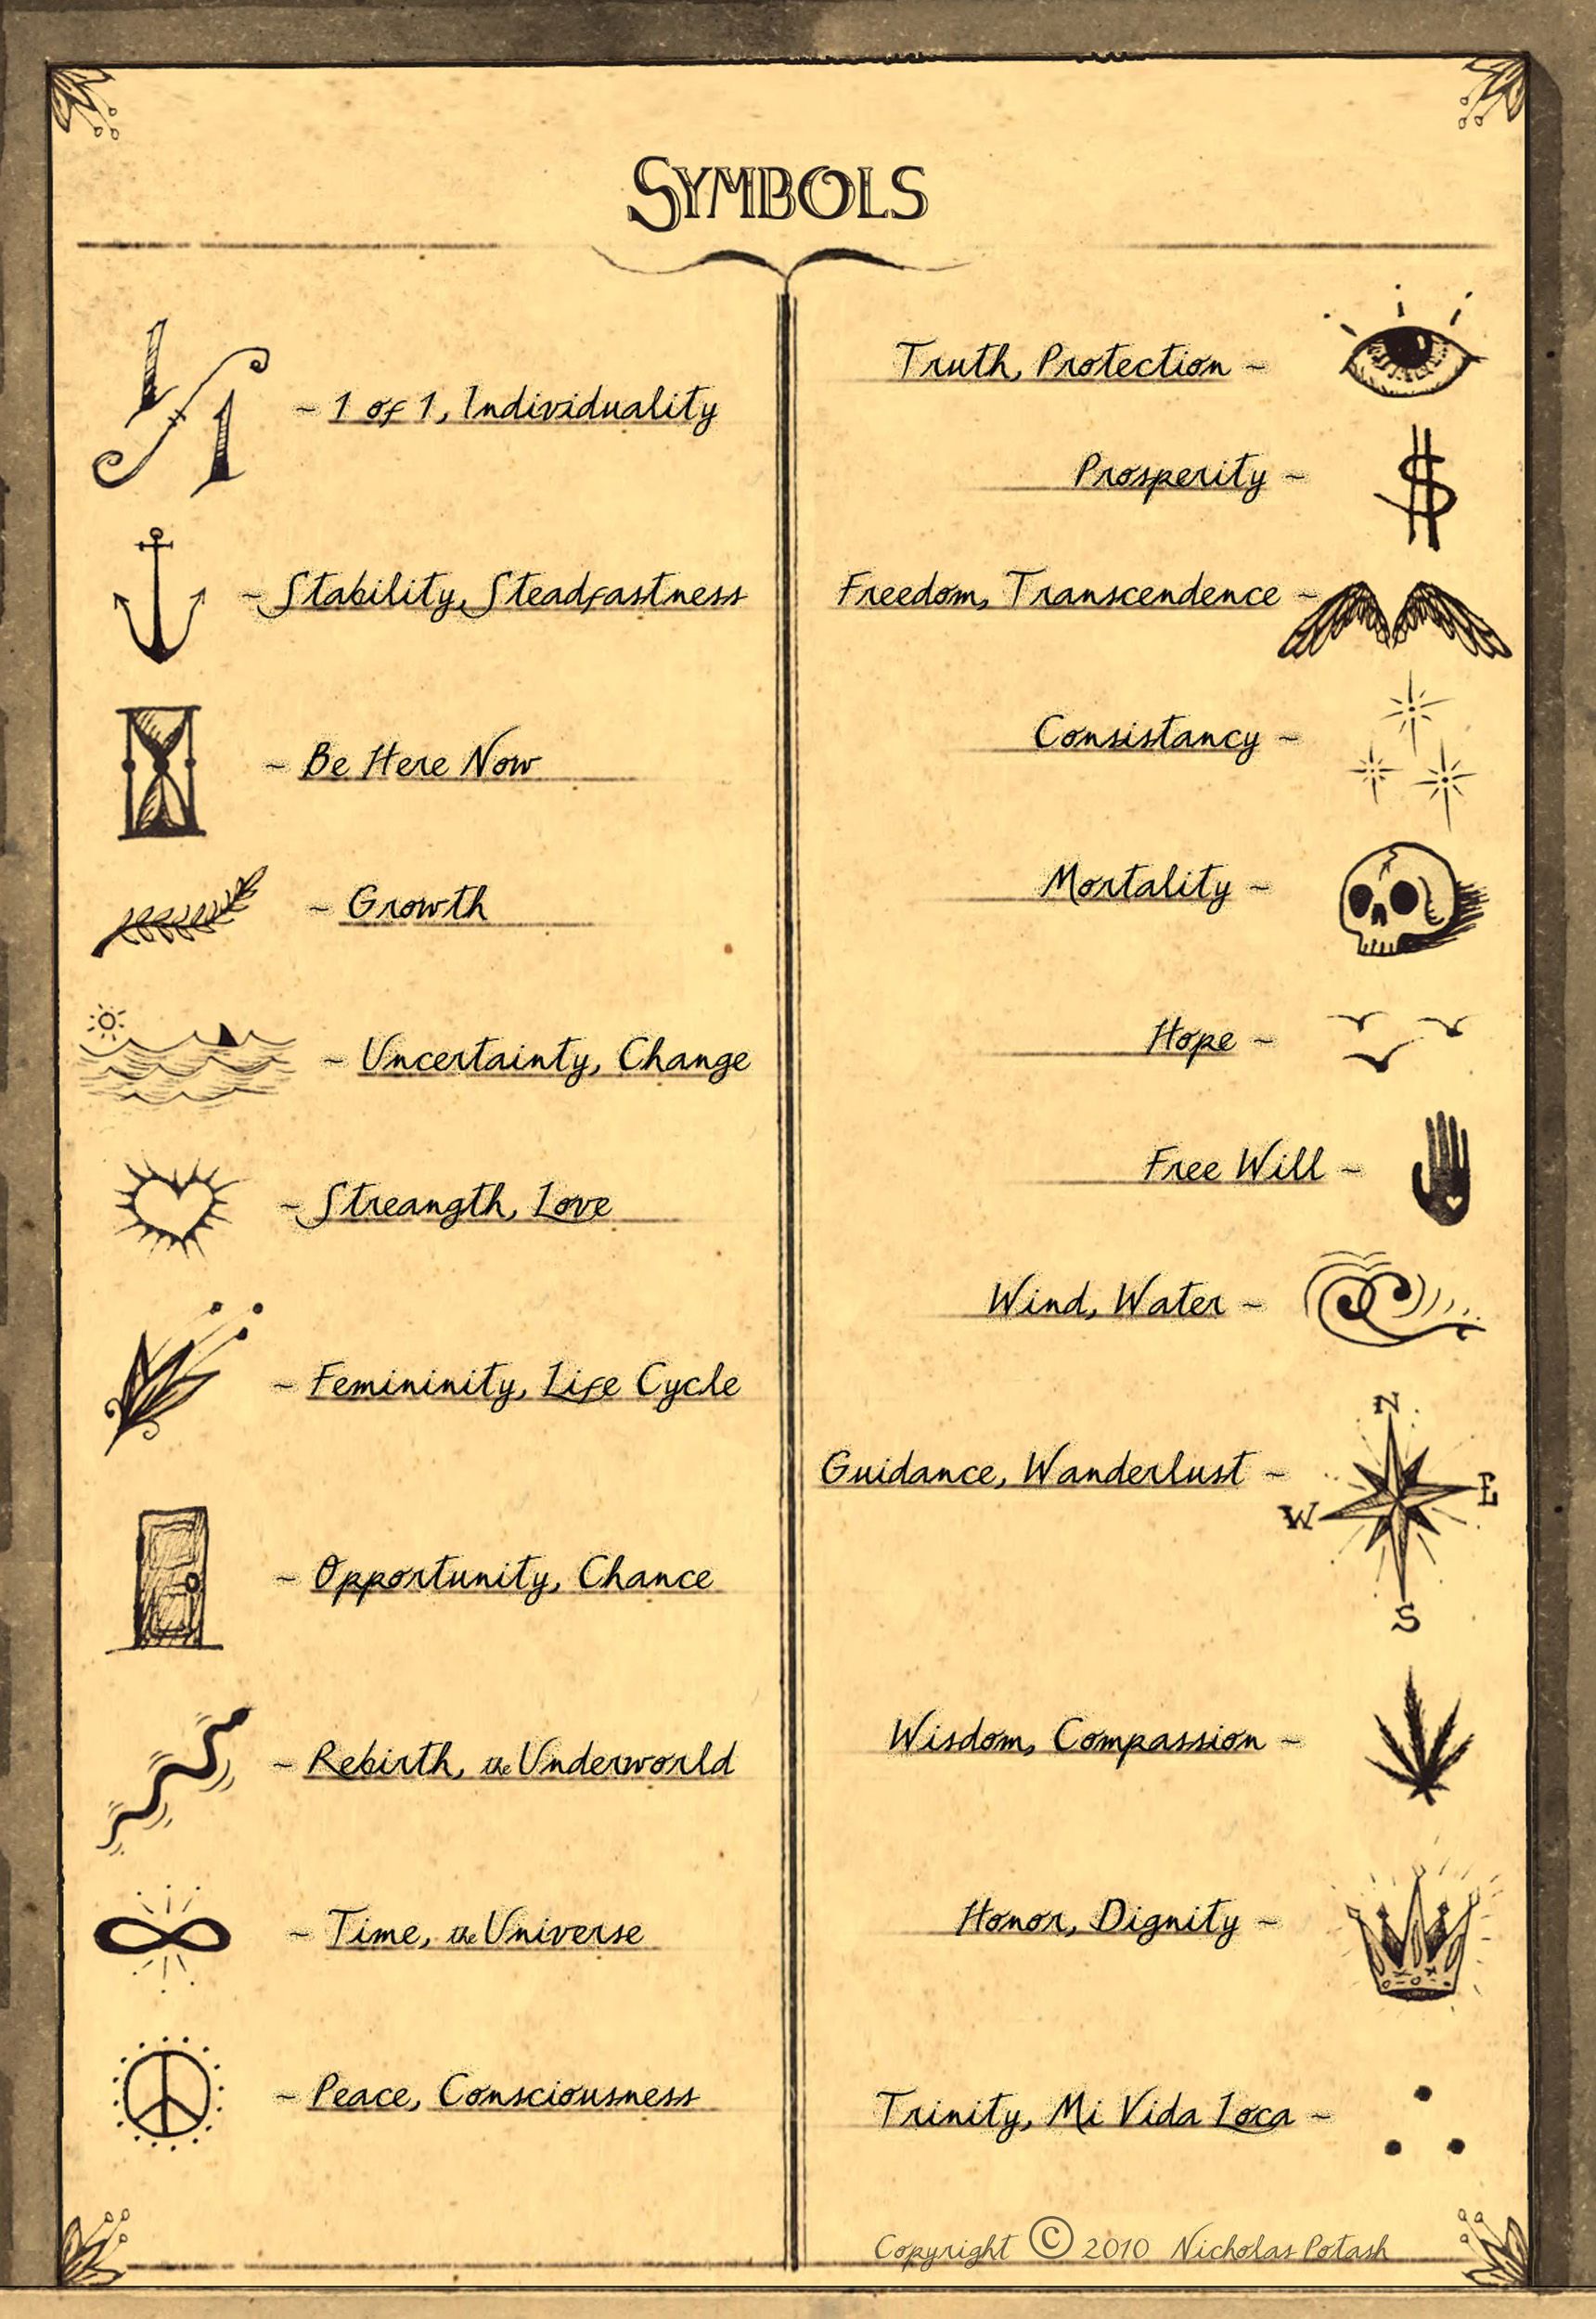 SYMBOLS
1/1 ~ 1 of 1, Individuality
~ Stability, Steadfastness
~ Be Here Now
~ Growth
~ Uncertainty, Change
~ Streangth, Love
~ Femininity, Life Cycle
~ Opportunity, Chance
~ Rebirth, the Underworld
~ Time, the Universe
~ Peace, Consciousness
Truth, Protection ~
Prosperity ~ $
Freedom, Transcendence ~
Consistancy ~
Mortality ~
Hope ~
Free Will ~
Wind, Water ~
N
Guidance, Wanderlust ~
W E
S
Wisdom, Compassion ~
Honor, Dignity ~
Trinity, Mi Vida Loca ~
Copyright © 2010 Nicholas Potash